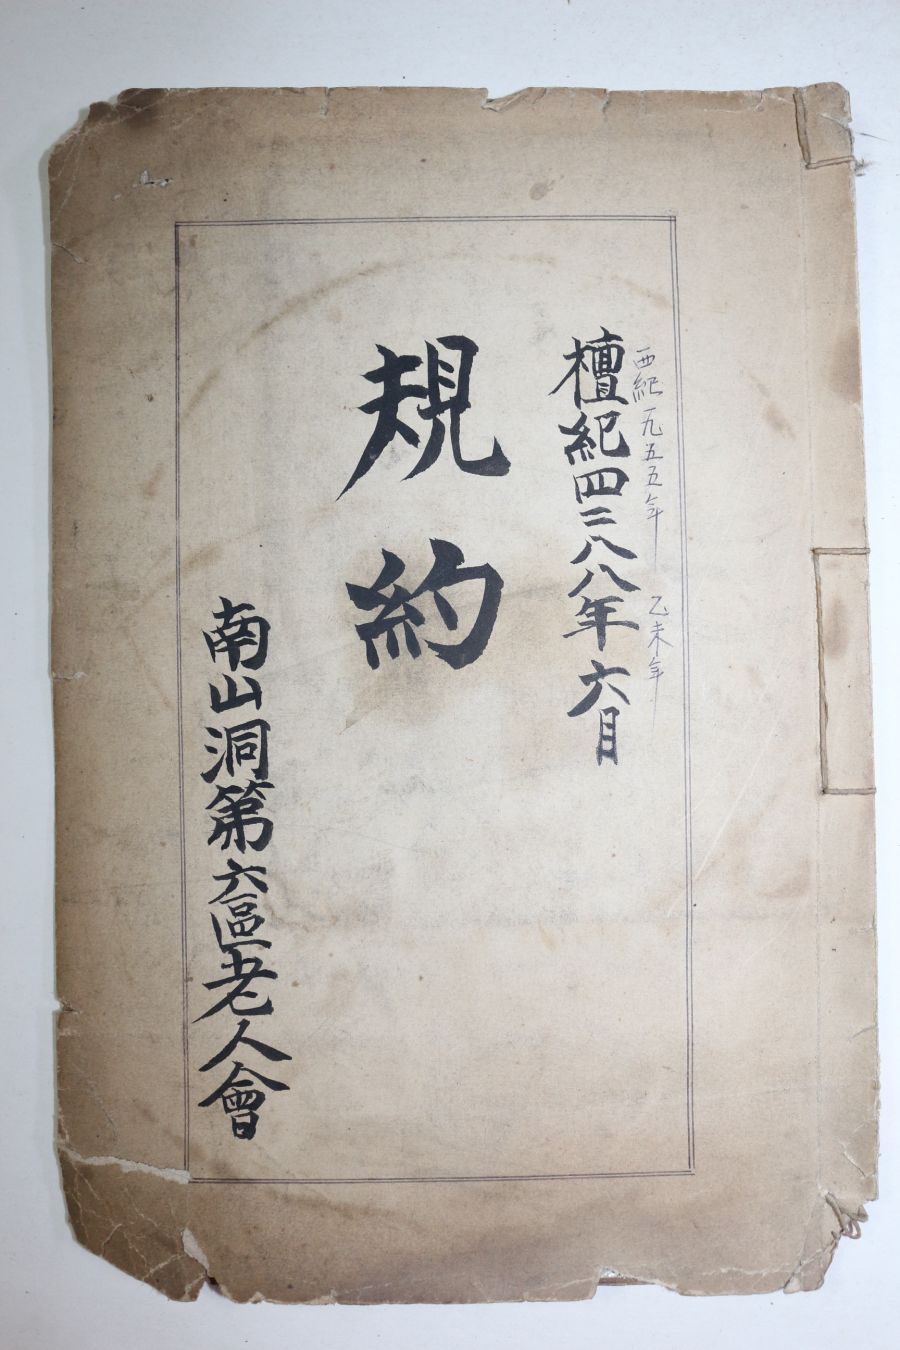 西紀一九五五年 乙未年
檀紀四二八八年六月
規約
南山洞第六區老人會